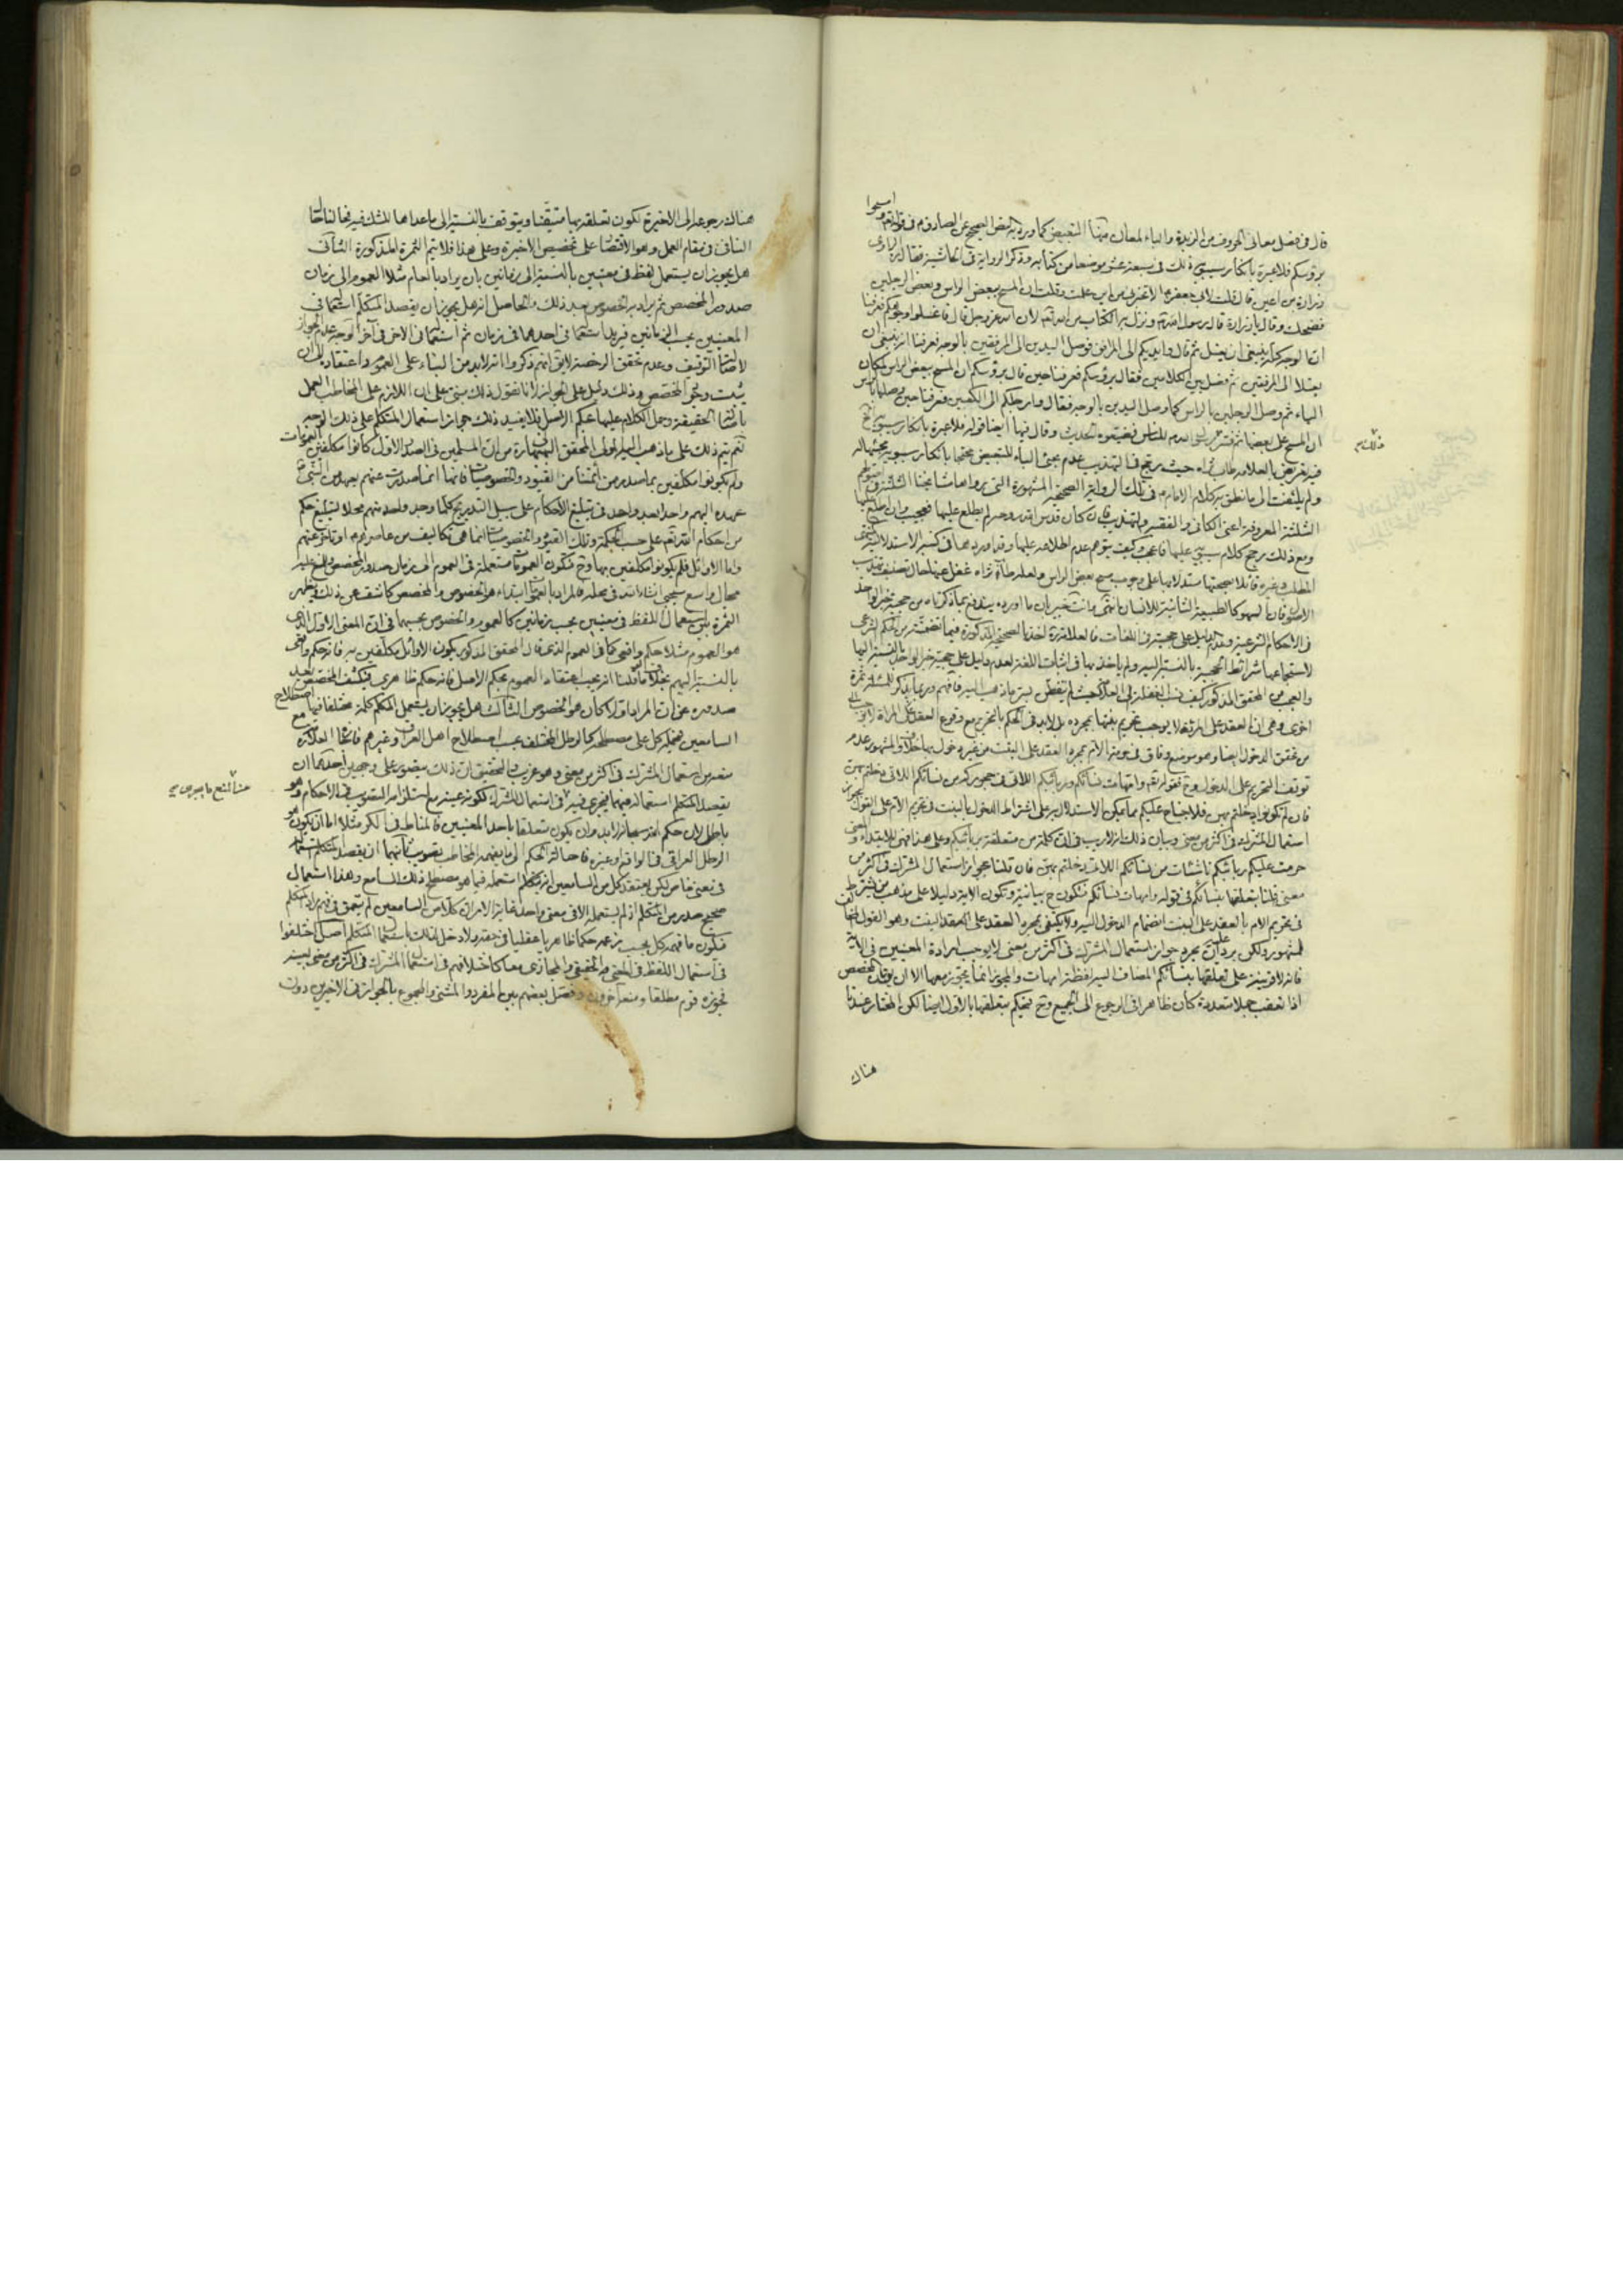 قال في فصل معاني الحروف من الزبدة والباء لمعان منها التبعيض كما ورد به النص الصحيح عن الصادق م في قوله تعم وامسحوا
برؤسكم فلا عبرة بانكار سيبويه ذلك في سبعة عشر موضعا من كتابه وذكر الرواية في الحاشية فقال
زرارة بن اعين قال قلت لابي جعفر ع الا تخبرني من اين علمت وقلت ان المسح ببعض الراس وبعض الرجلين
فضحك وقال يا زرارة قال رسول الله ونزل به الكتاب من الله تعم لان الله عز وجل قال فاغسلوا وجوهكم فعرفنا
ان الوجه كله ينبغي ان يغسل ثم قال وايديكم الى المرافق فوصل اليدين الى المرفقين بالوجه فعرفنا انه ينبغي ان
يغسلا الى المرفقين ثم فصل بين الكلامين فقال برؤسكم فعرفنا حين قال برؤسكم ان المسح ببعض الراس لمكان
الباء ثم وصل الرجلين بالراس كما وصل اليدين بالوجه فقال وارجلكم الى الكعبين فعرفنا حين وصلها بالراس
ان المسح على بعضها ثم فسر رسول الله للناس فضيعوه الحديث وقال فيها ايضا قوله فلا عبرة بانكار سيبويه الخ
ولم يلتفت الى ما نطق به كلام الامام في تلك الرواية الصحيحة المشهورة التي رواها مشايخنا الثلثة في
الثلثة المعروفة اعني الكافي والفقيه والتهذيب فان كان قدس الله روحه لم يطلع عليها فعجيب وان اطلع عليها
ومع ذلك رجح كلام سيبويه عليها فاعجب وكيف يتوهم عدم اطلاعه عليها وقد اوردها في كتبه الاستدلالية
فان السهو كالطبيعة الثانية للانسان انتهى وانت خبير بان ما اورده يندفع بما ذكرناه من حجية خبر الواحد
في الاحكام الشرعية وعدم الدليل على حجيته في اللغات فالعلامة اخذ بالصحيحة المذكورة فيما تضمنته من الحكم الشرعي
لاستجماعها شرائط الحجية بالنسبة اليه ولم ياخذ بها في اثبات اللغة لعدم دليل على حجية خبر الواحد بالنسبة اليها
والعجب من المحقق المذكور كيف نسب الغفلة الى العلامة حيث لم يتفطن بسر ما ذهب اليه فافهم وربما يذكر للمسئلة ثمرة
اخرى وهي ان العقد على المرئة لا يوجب تحريم بنتها بمجرده بل لا بد في الحكم بالتحريم مع وقوع العقد على المراة
من تحقق الدخول ايضا وهو موضع وفاق وفي حرمة الام بمجرد العقد على البنت من غير دخول بها خلاف والمشهور عدم
توقف التحريم على الدخول وح فقوله تعم وامهات نسائكم وربائبكم اللاتي في حجوركم من نسائكم اللاتي دخلتم بهن
فان لم تكونوا دخلتم بهن فلا جناح عليكم مما يمكن الاستدلال به على اشتراط الدخول بالبنت في تحريم الام على القول بجواز
استعمال المشترك في اكثر من معنى وبيان ذلك انه لا ريب في ان كلمة من متعلقة بربائبكم وعلى هذا فهي للابتداء والمعنى
حرمت عليكم ربائبكم ناشئات من نسائكم اللاتي دخلتم بهن فان قلنا بجواز استعمال المشترك في اكثر من
معنى قلنا بتعلقها بنسائكم في قوله وامهات نسائكم فتكون ح بيانية وتكون الاية دليلا على مذهب من يشترط
في تحريم الام بالعقد على البنت انضمام الدخول اليه ولا يكتفي بمجرد العقد على البنت وهو القول المخالف
للمشهور ولكن يرد عليه ان مجرد جواز استعمال المشترك في اكثر من معنى لا يوجب ارادة المعنيين في الاية
فانه لا قرينة على تعلقها بنسائكم المضاف اليه لفظة امهات والمجوز انما يجوز معها الا ان يقال المخصص
اذا تعقب جملا متعددة كان ظاهرا في الرجوع الى الجميع وح فيحكم بتعلقها بالاول ايضا لكن المختار عندنا
هناك
هناك رجوعه الى الاخيرة لكون تعلقه بها متيقنا ويتوقف بالنسبة الى ما عداها للشك فيه
الثاني في مقام العمل وهو الاقتصار على تخصيص الاخيرة وعلى هذا فلا يتم الثمرة المذكورة الثاني
هل يجوز ان يستعمل لفظ في معنيين بالنسبة الى زمانين بان يراد بالعام مثلا العموم الى زمان
صدور المخصص ثم يراد به الخصوص بعد ذلك والحاصل انه هل يجوز ان يقصد المتكلم استعماله في
المعنيين بحسب الزمانين فيريد استعماله في احدهما في زمان ثم استعماله في الاخر في آخر الوجه عدم الجواز
لاصالة التوقيف وعدم تحقق الرخصة لا يقال انهم ذكروا انه لا بد من البناء على العموم واعتقاده الى ان
يثبت وجود المخصص وذلك دليل على الجواز لانا نقول ذلك مبني على ان اللازم على المخاطب العمل
باصالة الحقيقة وحمل الكلام عليها بحكم الاصل فلا يفيد ذلك جواز استعمال المتكلم على ذلك الوجه
نعم يتم ذلك على ما ذهب اليه المولى المحقق البهبهاني من ان المسلمين في الصدر الاول كانوا مكلفين بالعمومات
ولم يكونوا مكلفين بما صدر من ائمتنا من القيود والخصوصيات فانها انما صدرت عنهم
عهده اليهم واحدا بعد واحد في تبليغ الاحكام على سبيل التدريج كلما وجد واحد منهم محلا لتبليغ حكم
من احكام الله تعم على حسب الحكمة وتلك القيود والخصوصيات انما هي تكاليف من عاصرهم او تاخر عنهم
واما الاوائل فلم يكونوا مكلفين بها وح فتكون العمومات مستعملة في العموم الى زمان صدور المخصص
مجال واسع سيجئ انشاء الله في محله فالمراد بالعمومات ابتداء هو الخصوص والمخصص كاشف عن ذلك ويظهر
الثمرة بين استعمال اللفظ في معنيين بحسب زمانين كالعموم والخصوص بحسبهما في ان المعنى الاول الذي
هو العموم مثلا حكم واقعي كما في العموم الذي قال المحقق المذكور بكون الاوائل مكلفين به فانه حكم واقعي
بالنسبة اليهم بخلاف ما قلنا انه يجب اعتقاد العموم بحكم الاصل فانه حكم ظاهري فيكشف المخصص بعد
صدوره عن ان المراد اولا كان هو الخصوص الثالث هل يجوز ان يستعمل المتكلم كلمة مختلفا فيها اصطلاح
السامعين فيحمله كل على مصطلحه كالرطل المختلف بحسب اصطلاح اهل العراق وغيرهم
منعه من استعمال المشترك في اكثر من معنى وهو غريب والتحقيق ان ذلك يتصور على وجهين احدهما ان
يقصد المتكلم استعماله فيهما فيجري فيه ما في استعمال المشترك لكونه عينه مع استلزامه التصويب في الاحكام وهو
باطل لان حكم الله سبحانه لا بد وان يكون متعلقا باحد المعنيين فالمناط في الكر مثلا اما ان يكون هو
الرطل العراقي في الواقع او غيره فاحالة الحكم الى ما يفهمه المخاطب تصويب ثانيهما ان يقصد المتكلم استعماله
في معنى خاص لكن يعتقد كل من السامعين انه استعمله فيما هو مصطلح ذلك السامع وهذا استعمال
صحيح صدر من المتكلم اذ لم يستعمله الا في معنى واحد غاية الامر ان كلا من السامعين لم يتعمق في فهم مراد المتكلم
فيكون ما فهمه كل بحسب زعمه حكما ظاهريا عقليا في حقه ولا دخل لذلك باستعمال المتكلم اصل اختلفوا
في استعمال اللفظ في المعنى الحقيقي والمجازي معا كاختلافهم في استعمال المشترك في اكثر من معنى بعينه
فجوزه قوم مطلقا ومنعه آخرون وفصل بعضهم بين المفرد والمثنى والمجموع بالجواز في الاخيرين دون